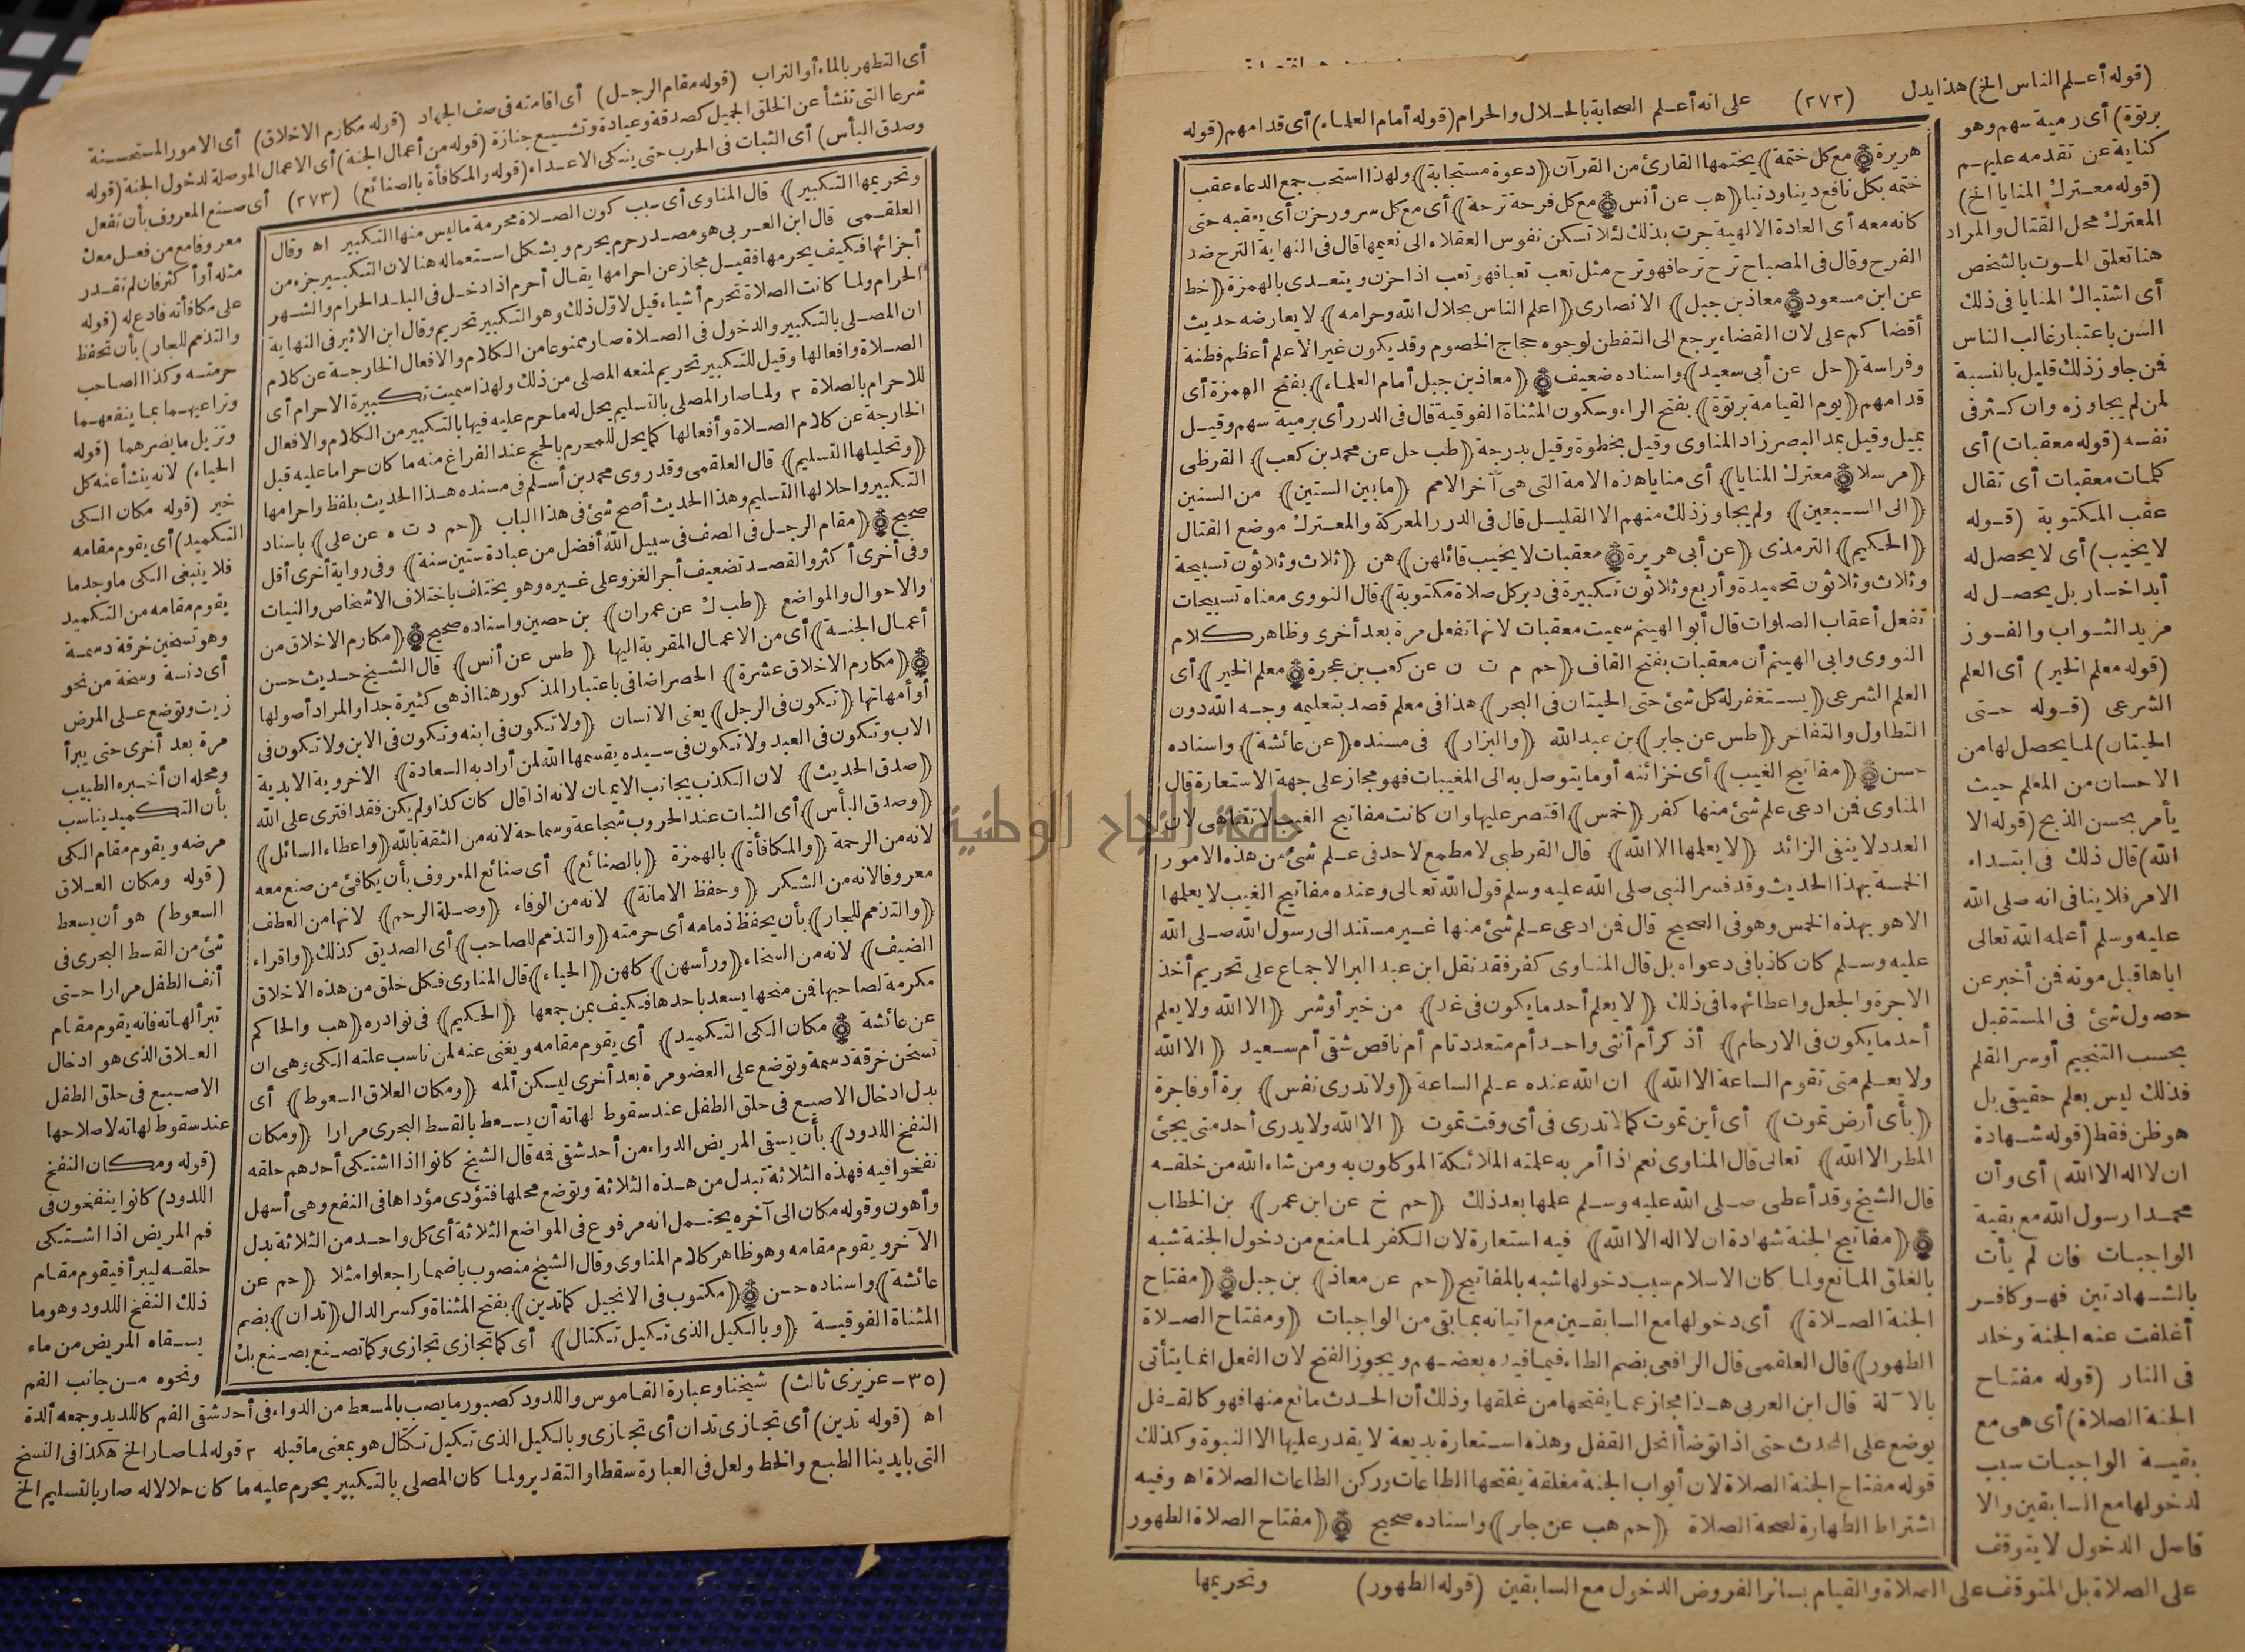 (قوله أعلم الناس الخ) هذا يدل (٢٧٢) على انه أعلم الصحابة بالحلال والحرام (قوله أمام العلماء) أى قدامهم (قوله
برتوة) أى رمية سهم وهو
كناية عن تقدمه عليهم
(قوله معترك المنايا الخ)
المعترك محل القتال والمراد
هنا تعلق الموت بالشخص
أى اشتباك المنايا فى ذلك
السن باعتبار غالب الناس
فمن جاوز ذلك قليل بالنسبة
لمن لم يجاوزه وان كثر فى
نفسه (قوله معقبات) أى
كلمات معقبات أى تقال
عقب المكتوبة (قوله
لا يخيب) أى لا يحصل له
أبدا خسار بل يحصل له
مزيد الثواب والفوز
(قوله معلم الخير) أى العلم
الشرعى (قوله حتى
الحيتان) لما يحصل لها من
الاحسان من المعلم حيث
يأمر بحسن الذبح (قوله الا
الله) قال ذلك فى ابتداء
الامر فلا ينافى انه صلى الله
عليه وسلم أعلمه الله تعالى
اياها قبل موته فمن أخبر عن
حصول شئ فى المستقبل
بحسب التنجيم أو سر القلم
فذلك ليس بعلم حقيقى بل
هو ظن فقط (قوله شهادة
ان لا اله الا الله) أى وأن
محمدا رسول الله مع بقية
الواجبات فان لم يأت
بالشهادتين فهو كافر
أغلقت عنه الجنة وخلد
فى النار (قوله مفتاح
الجنة الصلاة) أى هى مع
بقية الواجبات سبب
لدخولها مع السابقين والا
فاصل الدخول لا يتوقف
على الصلاة بل المتوقف على الصلاة والقيام بسائر الفروض الدخول مع السابقين (قوله الطهور) وتحريمها
هريرة ﴿مع كل ختمة﴾ يختمها القارئ من القرآن ﴿دعوة مستجابة﴾ ولهذا استحب جمع الدعاء عقب
ختمه بكل نافع دينا ودنيا ﴿هب عن أنس ﴿مع كل فرحة ترحة﴾ أى مع كل سرور حزن أى يعقبه حتى
كانه معه أى العادة الالهية جرت بذلك لئلا تسكن نفوس العقلاء الى نعيمها قال فى النهاية الترح ضد
الفرح وقال فى المصباح ترح ترحا فهو ترح مثل تعب تعبا فهو تعب اذا حزن ويتعدى بالهمزة ﴿خط
عن ابن مسعود ﴿معاذ بن جبل﴾ الانصارى ﴿اعلم الناس بحلال الله وحرامه﴾ لا يعارضه حديث
أقضاكم على لان القضاء يرجع الى التفطن لوجوه حجاج الخصوم وقد يكون غير الاعلم أعظم فطنة
وفراسة ﴿حل عن أبى سعيد﴾ واسناده ضعيف ﴿معاذ بن جبل أمام العلماء﴾ بفتح الهمزة أى
قدامهم ﴿يوم القيامة برتوة﴾ بفتح الراء وسكون المثناة الفوقية قال فى الدرر أى برمية سهم وقيل
بميل وقيل بمد البصر زاد المناوى وقيل بخطوة وقيل بدرجة ﴿طب حل عن محمد بن كعب﴾ القرظى
﴿مرسلا ﴿معترك المنايا﴾ أى منايا هذه الامة التى هى آخر الامم ﴿ما بين الستين﴾ من السنين
﴿الى السبعين﴾ ولم يجاوز ذلك منهم الا القليل قال فى الدرر المعركة والمعترك موضع القتال
﴿الحكيم﴾ الترمذى ﴿عن أبى هريرة ﴿معقبات لا يخيب قائلهن﴾ هن ﴿ثلاث وثلاثون تسبيحة
وثلاث وثلاثون تحميدة وأربع وثلاثون تكبيرة فى دبر كل صلاة مكتوبة﴾ قال النووى معناه تسبيحات
تفعل أعقاب الصلوات قال أبو الهيثم سميت معقبات لانها تفعل مرة بعد أخرى وظاهر كلام
النووى وابى الهيثم أن معقبات بفتح القاف ﴿حم م ت ن عن كعب بن عجرة ﴿معلم الخير﴾ أى
العلم الشرعى ﴿يستغفر له كل شئ حتى الحيتان فى البحر﴾ هذا فى معلم قصد بتعليمه وجه الله دون
التطاول والتفاخر ﴿طس عن جابر﴾ بن عبد الله ﴿والبزار﴾ فى مسنده ﴿عن عائشة﴾ واسناده
حسن ﴿مفاتيح الغيب﴾ أى خزائنه أو ما يتوصل به الى المغيبات فهو مجاز على جهة الاستعارة قال
المناوى فمن ادعى علم شئ منها كفر ﴿خمس﴾ اقتصر عليها وان كانت مفاتيح الغيب لا تتناهى لان
العدد لا ينفى الزائد ﴿لا يعلمها الا الله﴾ قال القرطبى لا مطمع لاحد فى علم شئ من هذه الامور
الخمسة بهذا الحديث وقد فسر النبى صلى الله عليه وسلم قول الله تعالى وعنده مفاتيح الغيب لا يعلمها
الا هو بهذه الخمس وهو فى الصحيح قال فمن ادعى علم شئ منها غير مستند الى رسول الله صلى الله
عليه وسلم كان كاذبا فى دعواه بل قال المناوى كفر فقد نقل ابن عبد البر الاجماع على تحريم أخذ
الاجرة والجعل واعطائهما فى ذلك ﴿لا يعلم أحد ما يكون فى غد﴾ من خير أو شر ﴿الا الله ولا يعلم
أحد ما يكون فى الارحام﴾ أذكر أم أنثى واحد أم متعدد تام أم ناقص شقى أم سعيد ﴿الا الله
ولا يعلم متى تقوم الساعة الا الله﴾ ان الله عنده علم الساعة ﴿ولا تدرى نفس﴾ برة أو فاجرة
﴿بأى أرض تموت﴾ أى أين تموت كما لا تدرى فى أى وقت تموت ﴿الا الله ولا يدرى أحد متى يجئ
المطر الا الله﴾ تعالى قال المناوى نعم اذا أمر به علمته الملائكة الموكلون به ومن شاء الله من خلقه
قال الشيخ وقد أعطى صلى الله عليه وسلم علمها بعد ذلك ﴿حم خ عن ابن عمر﴾ بن الخطاب
﴿مفاتيح الجنة شهادة ان لا اله الا الله﴾ فيه استعارة لان الكفر لما منع من دخول الجنة شبه
بالغلق المانع ولما كان الاسلام سبب دخولها شبه بالمفاتيح ﴿حم عن معاذ﴾ بن جبل ﴿مفتاح
الجنة الصلاة﴾ أى دخولها مع السابقين مع اتيانه بما بقى من الواجبات ﴿ومفتاح الصلاة
الطهور﴾ قال العلقمى قال الرافعى بضم الطاء فيما قيده بعضهم ويجوز الفتح لان الفعل انما يتأتى
بالآلة قال ابن العربى هذا مجاز عما يفتحها من غلقها وذلك أن الحدث مانع منها فهو كالقفل
يوضع على المحدث حتى اذا توضأ انحل القفل وهذه استعارة بديعة لا يقدر عليها الا النبوة وكذلك
قوله مفتاح الجنة الصلاة لان أبواب الجنة مغلقة يفتحها الطاعات وركن الطاعات الصلاة اه وفيه
اشتراط الطهارة لصحة الصلاة ﴿حم هب عن جابر﴾ واسناده صحيح ﴿مفتاح الصلاة الطهور
أى التطهر بالماء أو التراب (قوله مقام الرجل) أى اقامته فى صف الجهاد (قوله مكارم الاخلاق) أى الامور المستحسنة
شرعا التى تنشأ عن الخلق الجميل كصدقة وعيادة وتشييع جنازة (قوله من أعمال الجنة) أى الاعمال الموصلة لدخول الجنة (قوله
وصدق البأس) أى الثبات فى الحرب حتى ينكى الاعداء (قوله والمكافأة بالصنائع) (٢٧٣) أى صنع المعروف بأن تفعل
معروفا مع من فعل معك
مثله أو أكثر فان لم تقدر
على مكافأته فادع له (قوله
والتذمم للجار) بأن تحفظ
حرمته وكذا الصاحب
وتراعيهما بما ينفعهما
وتزيل ما يضرهما (قوله
الحياء) لانه ينشأ عنه كل
خير (قوله مكان الكى
التكميد) أى يقوم مقامه
فلا ينبغى الكى ما وجد ما
يقوم مقامه من التكميد
وهو تسخين خرقة دسمة
أى دنسة وسخة من نحو
زيت وتوضع على المرض
مرة بعد أخرى حتى يبرأ
ومحله ان أخبره الطبيب
بأن التكميد يناسب
مرضه ويقوم مقام الكى
(قوله ومكان العلاق
السعوط) هو أن يسعط
شئ من القسط البحرى فى
أنف الطفل مرارا حتى
تبرأ لهاته فانه يقوم مقام
العلاق الذى هو ادخال
الاصبع فى حلق الطفل
عند سقوط لهاته لاصلاحها
(قوله ومكان النفخ
اللدود) كانوا ينفخون فى
فم المريض اذا اشتكى
حلقه ليبرأ فيقوم مقام
ذلك النفخ اللدود وهو ما
يسقاه المريض من ماء
ونحوه من جانب الفم
وتحريمها التكبير﴾ قال المناوى أى سبب كون الصلاة محرمة ما ليس منها التكبير اه وقال
العلقمى قال ابن العربى هو مصدر حرم يحرم ويشكل استعماله هنا لان التكبير جزء من
أجزائها فكيف يحرمها فقيل مجاز عن احرامها يقال أحرم اذا دخل فى البلد الحرام والشهر
الحرام ولما كانت الصلاة تحرم أشياء قيل لاول ذلك وهو التكبير تحريم وقال ابن الاثير فى النهاية
ان المصلى بالتكبير والدخول فى الصلاة صار ممنوعا من الكلام والافعال الخارجة عن كلام
الصلاة وافعالها وقيل للتكبير تحريم لمنعه المصلى من ذلك ولهذا سميت تكبيرة الاحرام أى
للاحرام بالصلاة ٢ ولما صار المصلى بالتسليم يحل له ما حرم عليه فيها بالتكبير من الكلام والافعال
الخارجة عن كلام الصلاة وأفعالها كما يحل للمحرم بالحج عند الفراغ منه ما كان حراما عليه قبل
﴿وتحليلها التسليم﴾ قال العلقمى وقد روى محمد بن أسلم فى مسنده هذا الحديث بلفظ واحرامها
التكبير واحلالها التسليم وهذا الحديث أصح شئ فى هذا الباب ﴿حم د ت ه عن على﴾ باسناد
صحيح ﴿مقام الرجل فى الصف فى سبيل الله أفضل من عبادة ستين سنة﴾ وفى رواية أخرى أقل
وفى أخرى أكثر والقصد تضعيف أجر الغزو على غيره وهو يختلف باختلاف الاشخاص والنيات
والاحوال والمواضع ﴿طب ك عن عمران﴾ بن حصين واسناده صحيح ﴿مكارم الاخلاق من
أعمال الجنة﴾ أى من الاعمال المقربة اليها ﴿طس عن أنس﴾ قال الشيخ حديث حسن
﴿مكارم الاخلاق عشرة﴾ الحصر اضافى باعتبار المذكور هنا اذ هى كثيرة جدا والمراد أصولها
أو أمهاتها ﴿تكون فى الرجل﴾ يعنى الانسان ﴿ولا تكون فى ابنه وتكون فى الابن ولا تكون فى
الاب وتكون فى العبد ولا تكون فى سيده يقسمها الله لمن أراد به السعادة﴾ الاخروية الابدية
﴿صدق الحديث﴾ لان الكذب يجانب الايمان لانه اذا قال كان كذا ولم يكن فقد افترى على الله
﴿وصدق البأس﴾ أى الثبات عند الحروب شجاعة وسماحة لانه من الثقة بالله ﴿واعطاء السائل﴾
لانه من الرحمة ﴿والمكافأة﴾ بالهمزة ﴿بالصنائع﴾ أى صنائع المعروف بأن يكافئ من صنع معه
معروفا لانه من الشكر ﴿وحفظ الامانة﴾ لانه من الوفاء ﴿وصلة الرحم﴾ لانها من العطف
﴿والتذمم للجار﴾ بأن يحفظ ذمامه أى حرمته ﴿والتذمم للصاحب﴾ أى الصديق كذلك ﴿واقراء
الضيف﴾ لانه من السخاء ﴿ورأسهن﴾ كلهن ﴿الحياء﴾ قال المناوى فكل خلق من هذه الاخلاق
مكرمة لصاحبها فمن منحها يسعد باحدها فكيف بمن جمعها ﴿الحكيم﴾ فى نوادره ﴿هب والحاكم
عن عائشة ﴿مكان الكى التكميد﴾ أى يقوم مقامه ويغنى عنه لمن ناسب علته الكى وهى ان
تسخن خرقة دسمة وتوضع على العضو مرة بعد أخرى ليسكن ألمه ﴿ومكان العلاق السعوط﴾ أى
بدل ادخال الاصبع فى حلق الطفل عند سقوط لهاته أن يسعط بالقسط البحرى مرارا ﴿ومكان
النفخ اللدود﴾ بأن يسقى المريض الدواء من أحد شقى فمه قال الشيخ كانوا اذا اشتكى أحدهم حلقه
نفخوا فيه فهذه الثلاثة تبدل من هذه الثلاثة وتوضع محلها فتؤدى مؤداها فى النفع وهى أسهل
وأهون وقوله مكان الى آخره يحتمل انه مرفوع فى المواضع الثلاثة أى كل واحد من الثلاثة بدل
الآخر ويقوم مقامه وهو ظاهر كلام المناوى وقال الشيخ منصوب باضمار اجعلوا مثلا ﴿حم عن
عائشة﴾ واسناده حسن ﴿مكتوب فى الانجيل كما تدين﴾ بفتح المثناة وكسر الدال ﴿تدان﴾ بضم
المثناة الفوقية ﴿وبالكيل الذى تكيل تكتال﴾ أى كما تجازى تجازى وكما تصنع يصنع بك
(٣٥ - عزيزى ثالث) شيخنا وعبارة القاموس واللدود كصبور ما يصب بالمسعط من الدواء فى أحد شقى الفم كاللديد وجمعه ألدة
اه (قوله تدين) أى تجازى تدان أى تجازى وبالكيل الذى تكيل تكتال هو بمعنى ما قبله ٢ قوله لما صار الخ هكذا فى النسخ
التى بايدينا الطبع والخط ولعل فى العبارة سقطا والتقدير ولما كان المصلى بالتكبير يحرم عليه ما كان حلالا له صار بالتسليم الخ
جامعة النجاح الوطنية